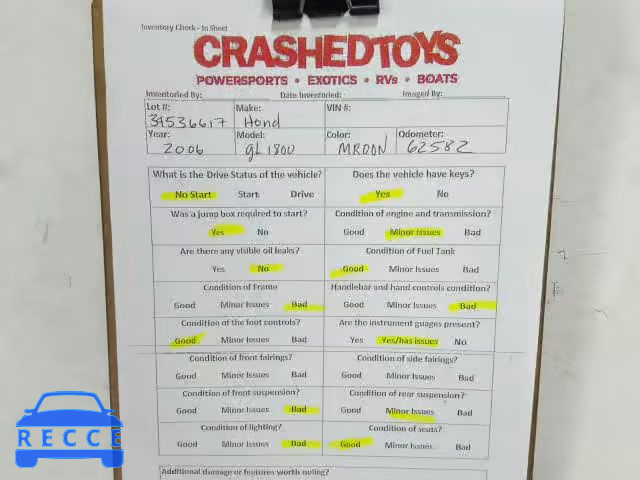 Inventory Check - In Sheet
CRASHEDTOYS
POWERSPORTS • EXOTICS • RVs • BOATS
Inventoried By: Date Inventoried: Imaged By:
Lot #: Make: VIN #:
34536617 Hond
Year: Model: Color: Odometer:
2006 gl 1800 MROON 62582
What is the Drive Status of the vehicle? Does the vehicle have keys?
No Start Start Drive Yes No
Was a jump box required to start? Condition of engine and transmission?
Yes No Good Minor Issues Bad
Are there any visible oil leaks? Condition of Fuel Tank
Yes No Good Minor Issues Bad
Condition of Frame Handlebar and hand controls condition?
Good Minor Issues Bad Good Minor Issues Bad
Condition of the foot controls? Are the instrument guages present?
Good Minor Issues Bad Yes Yes/has issues No
Condition of front fairings? Condition of side fairings?
Good Minor Issues Bad Good Minor Issues Bad
Condition of front suspension? Condition of rear suspension?
Good Minor Issues Bad Good Minor Issues Bad
Condition of lighting? Condition of seats?
Good Minor Issues Bad Good Minor Issues Bad
Additional damage or features worth noting?
RECCE